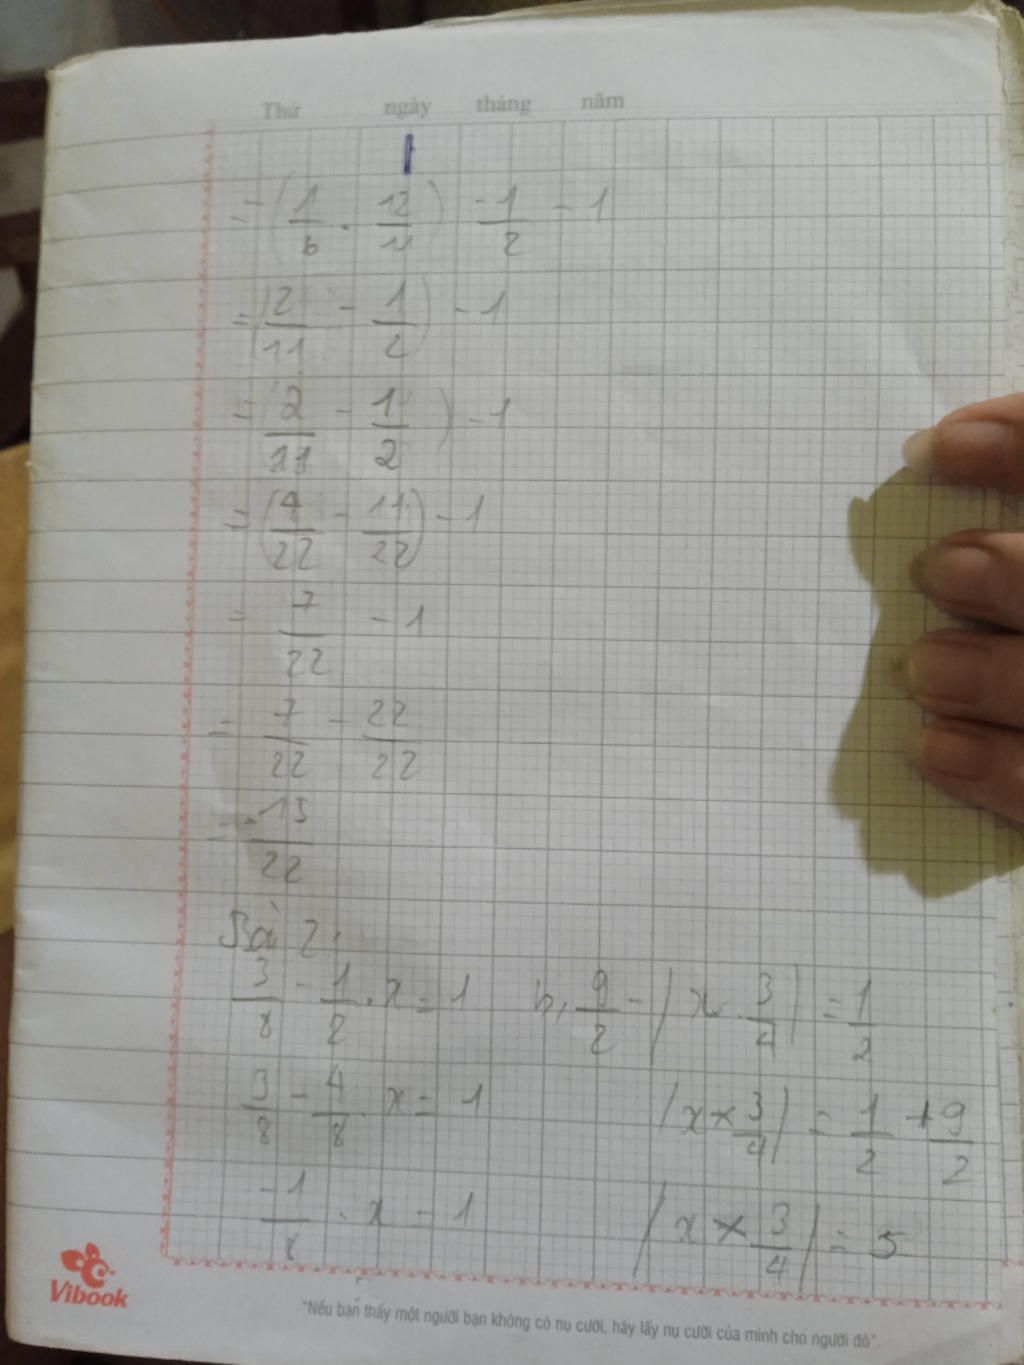 Thứ ngày tháng năm
= (1/6 . 12/11) - 1/2 - 1
= (2/11 - 1/2) - 1
= (2/11 - 1/2) - 1
= (4/22 - 11/22) - 1
= 7/22 - 1
= 7/22 - 22/22
= -15/22
Bài 2:
3/8 - 1/2 . x = 1
3/8 - 4/8 . x = 1
-1/8 . x = 1
b, 9/2 - | x . 3/4 | = 1/2
| x × 3/4 | = 1/2 + 9/2
| x × 3/4 | = 5
Vibook
"Nếu bạn thấy một người bạn không có nụ cười, hãy lấy nụ cười của mình cho người đó".